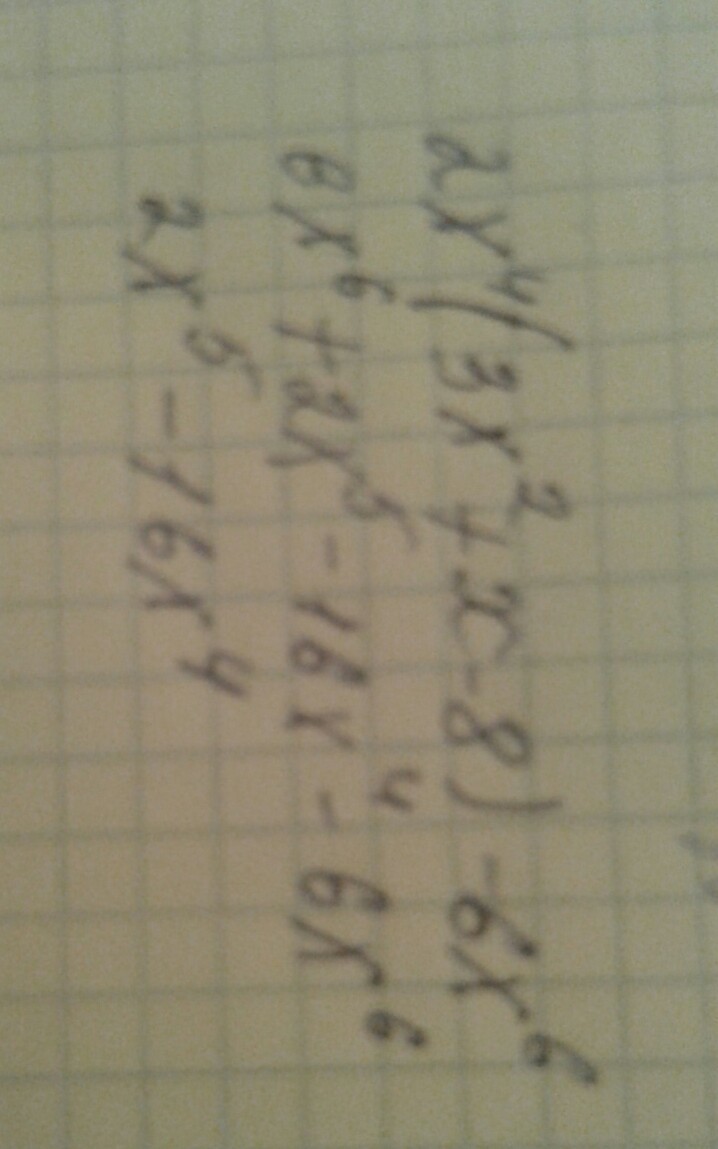 2x⁴(3x²+x-8)-6x⁶
6x⁶+2x⁵-16x⁴-6x⁶
2x⁵-16x⁴